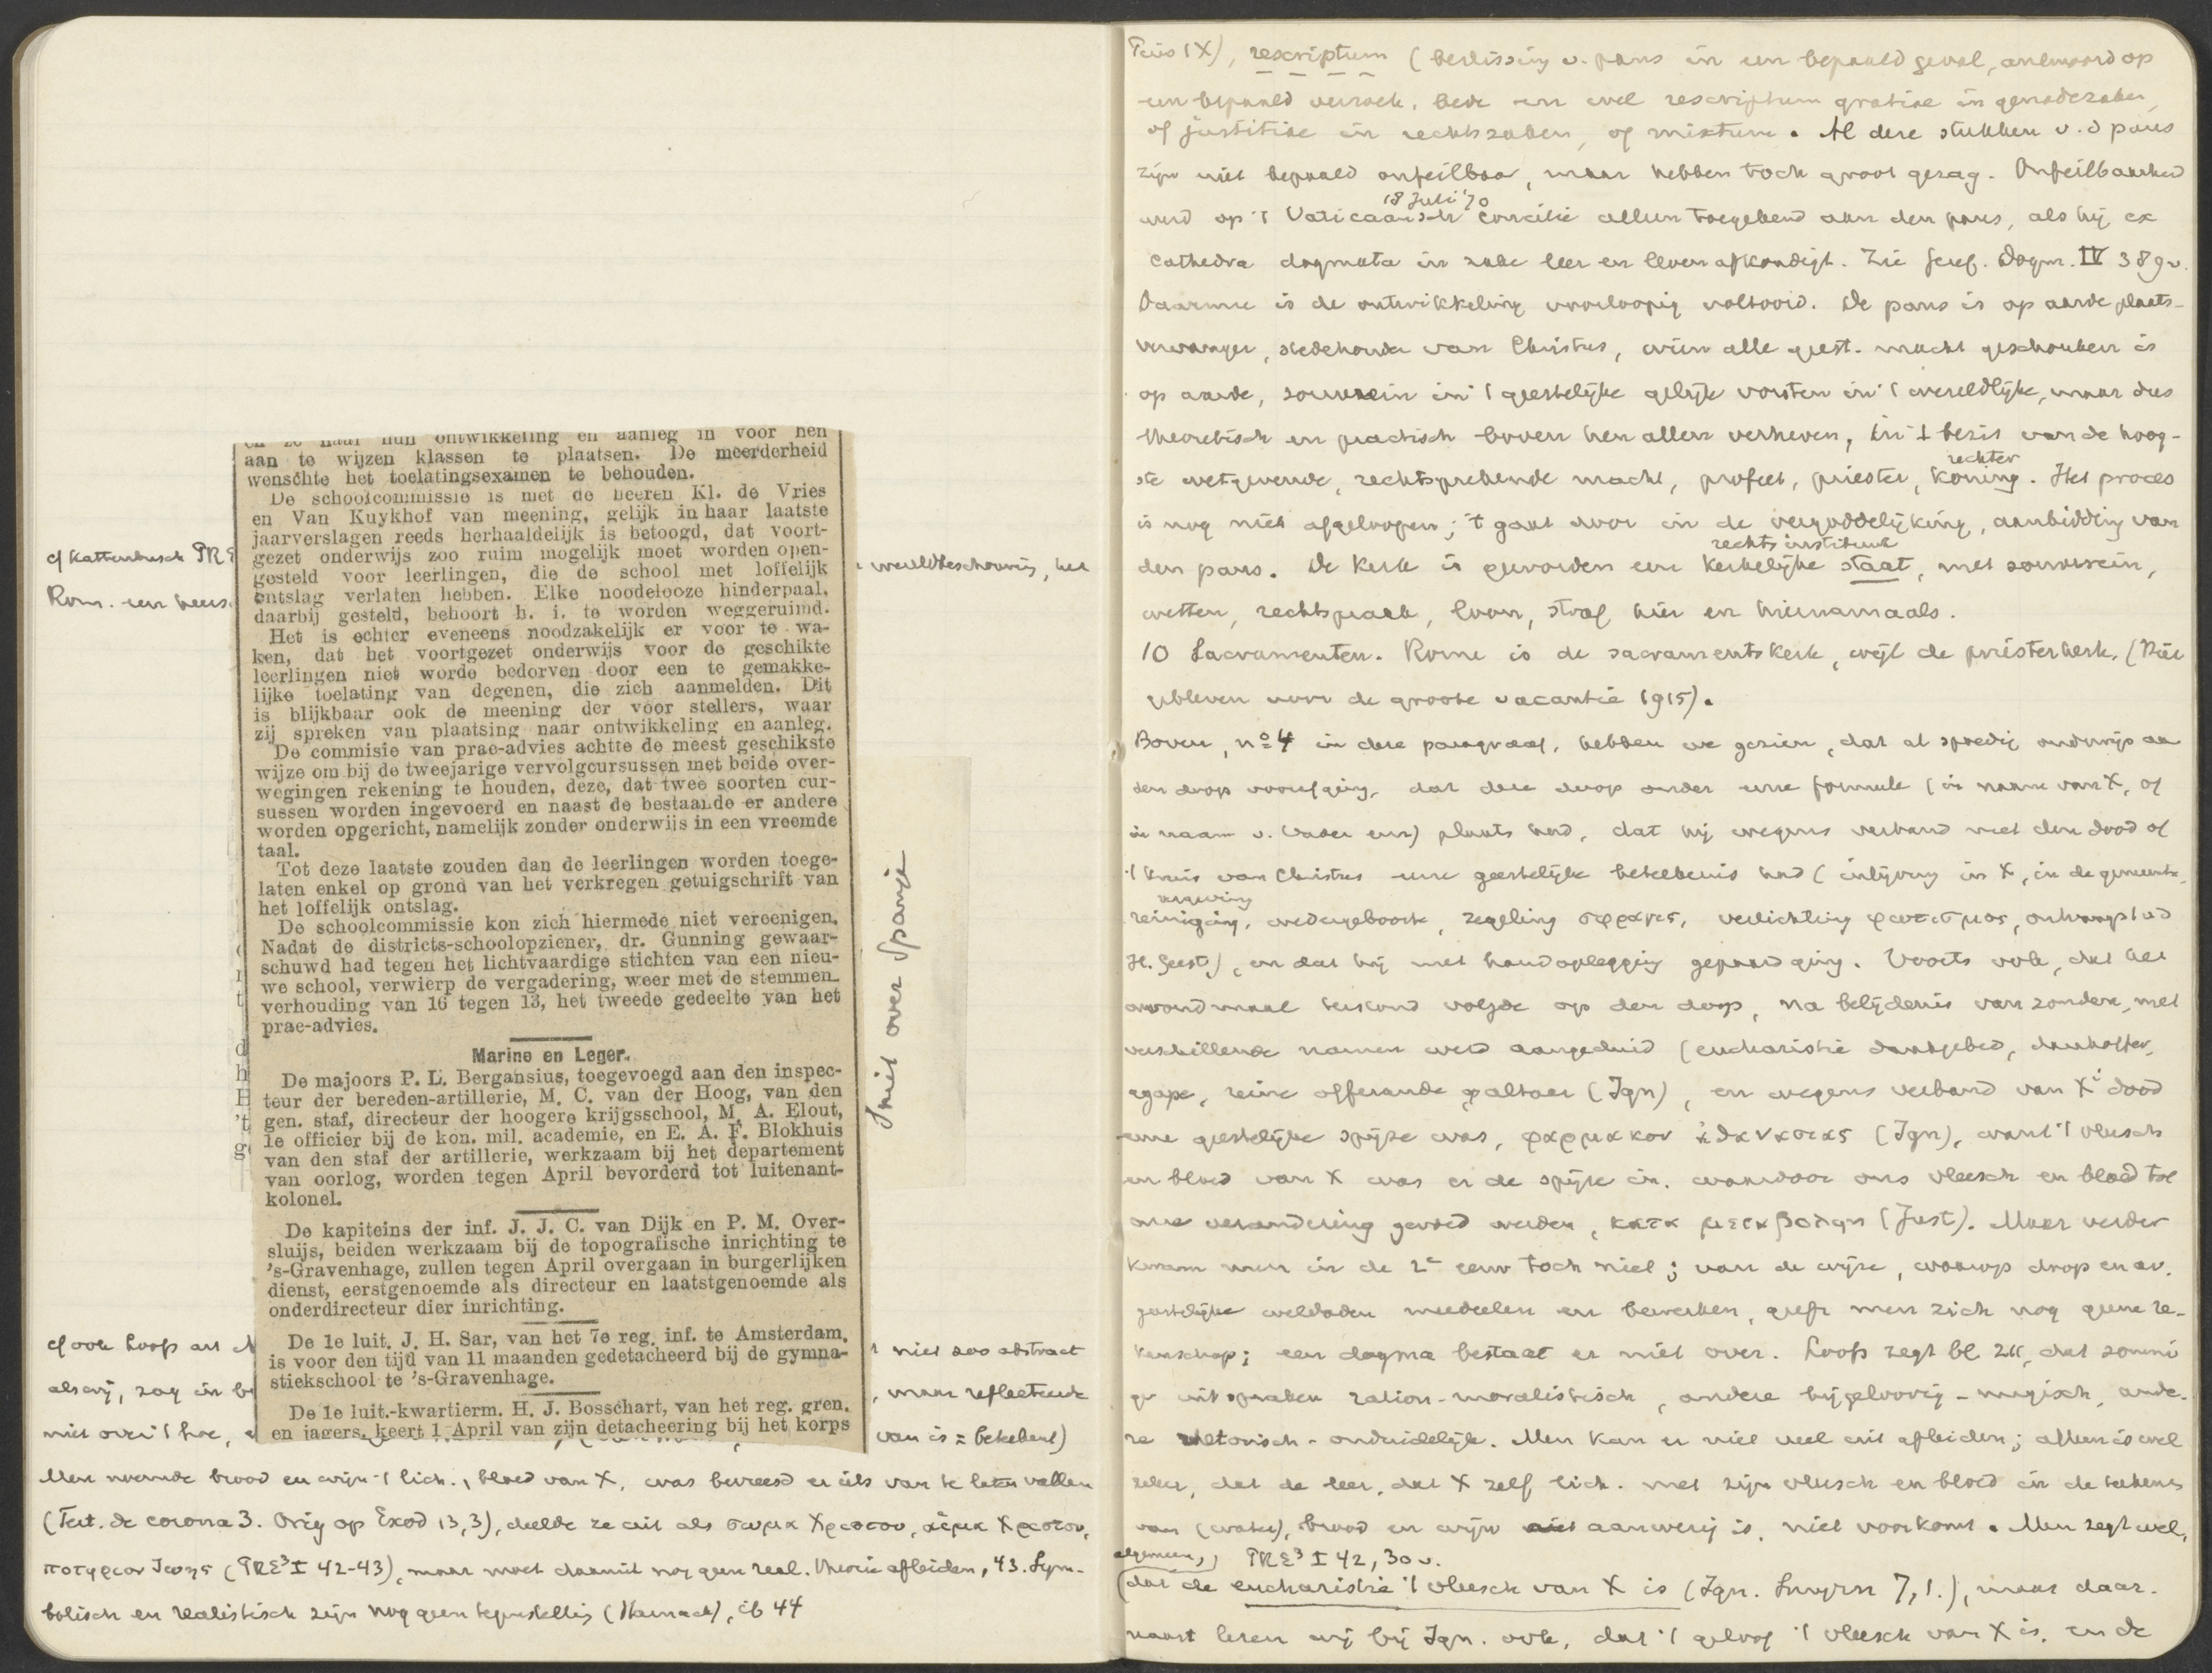 cf Kattenbusch PRE
Rom. een heers.
wereldbeschouwing, het
en ze naar hun ontwikkeling en aanleg in voor hen
aan te wijzen klassen te plaatsen. De meerderheid
wenschte het toelatingsexamen te behouden.
De schoolcommissie is met de heeren Kl. de Vries
en Van Kuykhof van meening, gelijk in haar laatste
jaarverslagen reeds herhaaldelijk is betoogd, dat voort-
gezet onderwijs zoo ruim mogelijk moet worden open-
gesteld voor leerlingen, die de school met loffelijk
ontslag verlaten hebben. Elke noodelooze hinderpaal,
daarbij gesteld, behoort h. i. te worden weggeruimd.
Het is echter eveneens noodzakelijk er voor te wa-
ken, dat het voortgezet onderwijs voor de geschikte
leerlingen niet worde bedorven door een te gemakke-
lijke toelating van degenen, die zich aanmelden. Dit
is blijkbaar ook de meening der voor stellers, waar
zij spreken van plaatsing naar ontwikkeling en aanleg.
De commisie van prae-advies achtte de meest geschikste
wijze om bij de tweejarige vervolgcursussen met beide over-
wegingen rekening te houden, deze, dat twee soorten cur-
sussen worden ingevoerd en naast de bestaande er andere
worden opgericht, namelijk zonder onderwijs in een vreemde
taal.
Tot deze laatste zouden dan de leerlingen worden toege-
laten enkel op grond van het verkregen getuigschrift van
het loffelijk ontslag.
De schoolcommissie kon zich hiermede niet vereenigen.
Nadat de districts-schoolopziener, dr. Gunning gewaar-
schuwd had tegen het lichtvaardige stichten van een nieu-
we school, verwierp de vergadering, weer met de stemmen-
verhouding van 16 tegen 13, het tweede gedeelte van het
prae-advies.
Marine en Leger.
De majoors P. L. Bergansius, toegevoegd aan den inspec-
teur der bereden-artillerie, M. C. van der Hoog, van den
gen. staf, directeur der hoogere krijgsschool, M. A. Elout,
1e officier bij de kon. mil. academie, en E. A. F. Blokhuis
van den staf der artillerie, werkzaam bij het departement
van oorlog, worden tegen April bevorderd tot luitenant-
kolonel.
De kapiteins der inf. J. J. C. van Dijk en P. M. Over-
sluijs, beiden werkzaam bij de topografische inrichting te
's-Gravenhage, zullen tegen April overgaan in burgerlijken
dienst, eerstgenoemde als directeur en laatstgenoemde als
onderdirecteur dier inrichting.
De 1e luit. J. H. Sar, van het 7e reg. inf. te Amsterdam,
is voor den tijd van 11 maanden gedetacheerd bij de gymna-
stiekschool te 's-Gravenhage.
De 1e luit.-kwartierm. H. J. Bosschart, van het reg. gren.
en jagers, keert 1 April van zijn detacheering bij het korps
niet over Spanje
cf ook Loofs art
niet zoo abstract
als wij, zag in
, maar reflecteerde
niet over 't hoe,
van is = beteekent)
Men noemde brood en wijn 't lich., bloed van X, was bevreesd er iets van te laten vallen
(Tert. de corona 3. Orig op Exod 13,3), deelde ze uit als σωμα Χριστου, αἱμα Χριστου,
ποτηριον ζωης (PRE³ I 42-43), maar moet daaruit nog geen real. theorie afleiden, 43. Sym-
bolisch en realistisch zijn nog geen tegenstelling (Harnack), ib 44
Pius IX), rescriptum (beslissing v. paus in een bepaald geval, antwoord op
een bepaald verzoek, bede en wel rescriptum gratiae in genadezaken,
of justitiae in rechtszaken, of mixtum. Al deze stukken v. d paus
zijn niet bepaald onfeilbaar, maar hebben toch groot gezag. Onfeilbaarheid
18 Juli '70
werd op 't Vaticaansch Concilie alleen toegekend aan den paus, als hij ex
cathedra dogmata in zake leer en leven afkondigt. Zie Geref. Dogm. IV 389v.
Daarmee is de ontwikkeling voorloopig voltooid. De paus is op aarde plaats-
vervanger, stedehouder van Christus, wien alle geest. macht geschonken is
op aarde, souverein in 't geestelijke gelijk vorsten in 't wereldlijke, maar dus
theoretisch en practisch boven hen allen verheven, in 't bezit van de hoog-
rechter
ste wetgevende, rechtsprekende macht, profeet, priester, koning. Het proces
is nog niet afgeloopen; 't gaat door in de vergoddelijking, aanbidding van
rechtsinstituut
den paus. De kerk is geworden een kerkelijke staat, met souverein,
wetten, rechtspraak, loon, straf hier en hiernamaals.
10 Sacramenten. Rome is de sacramentskerk, wijl de priesterkerk. (Hier
gebleven voor de groote vacantie 1915).
Boven, no 4 in deze paragraaf, hebben we gezien, dat al spoedig onderwijs aan
den doop voorafging, dat deze doop onder eene formule (in naam van X, of
in naam v. Vader enz) plaats had, dat hij wegens verband met den dood of
't kruis van Christus eene geestelijke beteekenis had (inlijving in X, in de gemeente,
vergeving
reiniging, wedergeboorte, zegeling σφραγις, verlichting φωτισμος, ontvangst v d
H. Geest), en dat hij met handoplegging gepaard ging. Voorts ook, dat het
avondmaal terstond volgde op den doop, na belijdenis van zonden, met
verschillende namen werd aangeduid (eucharistie dankgebed, dankoffer,
agape, reine offerande, altaar (Ign), en wegens verband van X' dood
eene geestelijke spijze was, φαρμακον ἀθανασιας (Ign), want 't vleesch
en bloed van X was er de spijze in, waardoor ons vleesch en bloed tot
onze verandering gevoed werden, κατα μεταβολην (Just). Maar verder
kwam men in de 2e eeuw toch niet; van de wijze, waarop doop en av.
geestelijke weldaden meedeelen en bewerken, geeft men zich nog geene re-
kenschap; een dogma bestaat er niet over. Loofs zegt bl 211, dat sommi
ge uitspraken ration-moralistisch, andere bijgeloovig-magisch, ande-
re rhetorisch-onduidelijk. Men kan er niet veel uit afleiden; alleen is wel
zeker, dat de leer, dat X zelf lich. met zijn vleesch en bloed in de teekenen
van (water), brood en wijn aanwezig is, niet voorkomt. Men zegt wel,
algemeen, PRE³ I 42, 30 v.
(dat de eucharistie 't vleesch van X is (Ign. Smyrn 7,1.), maar daar-
naast lezen wij bij Ign. ook, dat 't geloof 't vleesch van X is, en de